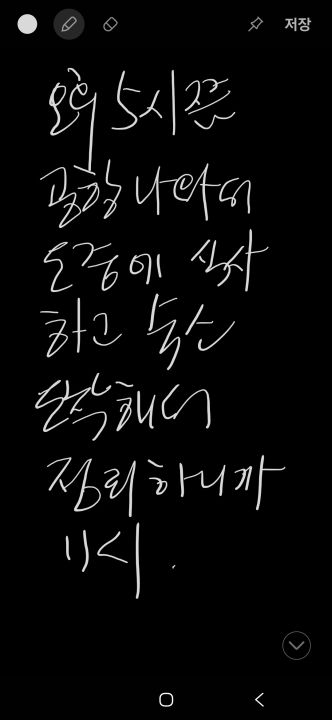 저장
오후 5시쯤
공항 나와서
도중에 식사
하고 녹산
도착해서
정리하니까
11시.